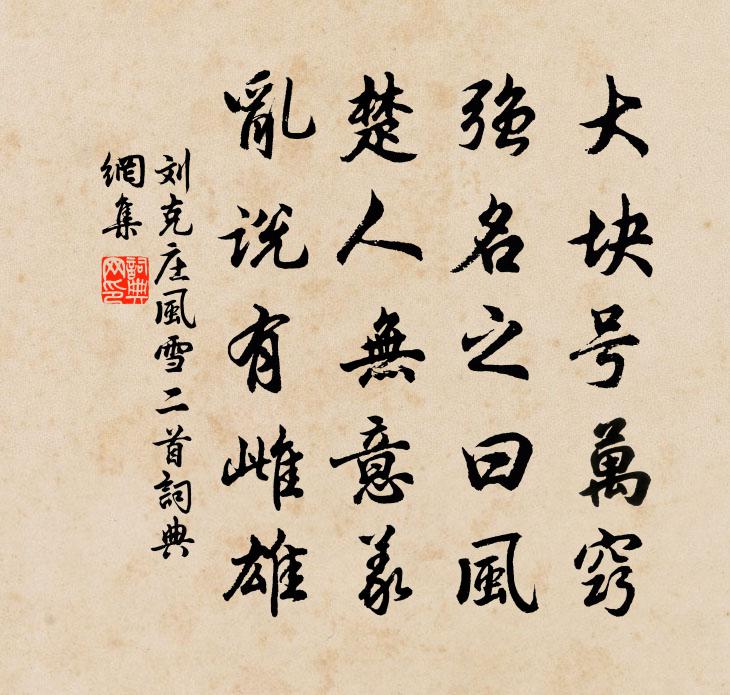 大块号萬窍
强名之曰風
楚人無意義
亂说有雌雄
刘克庄風雪二首詞典
網集
詞典
网印